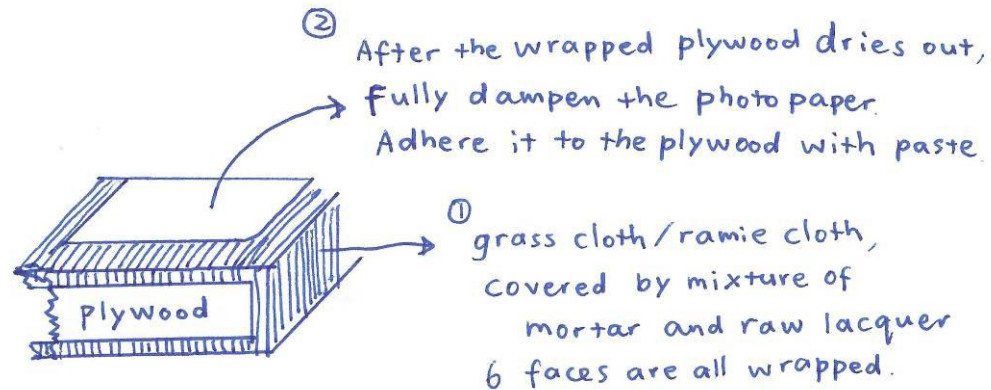 ②
After the wrapped plywood dries out,
fully dampen the photo paper.
Adhere it to the plywood with paste
①
grass cloth/ramie cloth,
covered by mixture of
mortar and raw lacquer
6 faces are all wrapped.
plywood